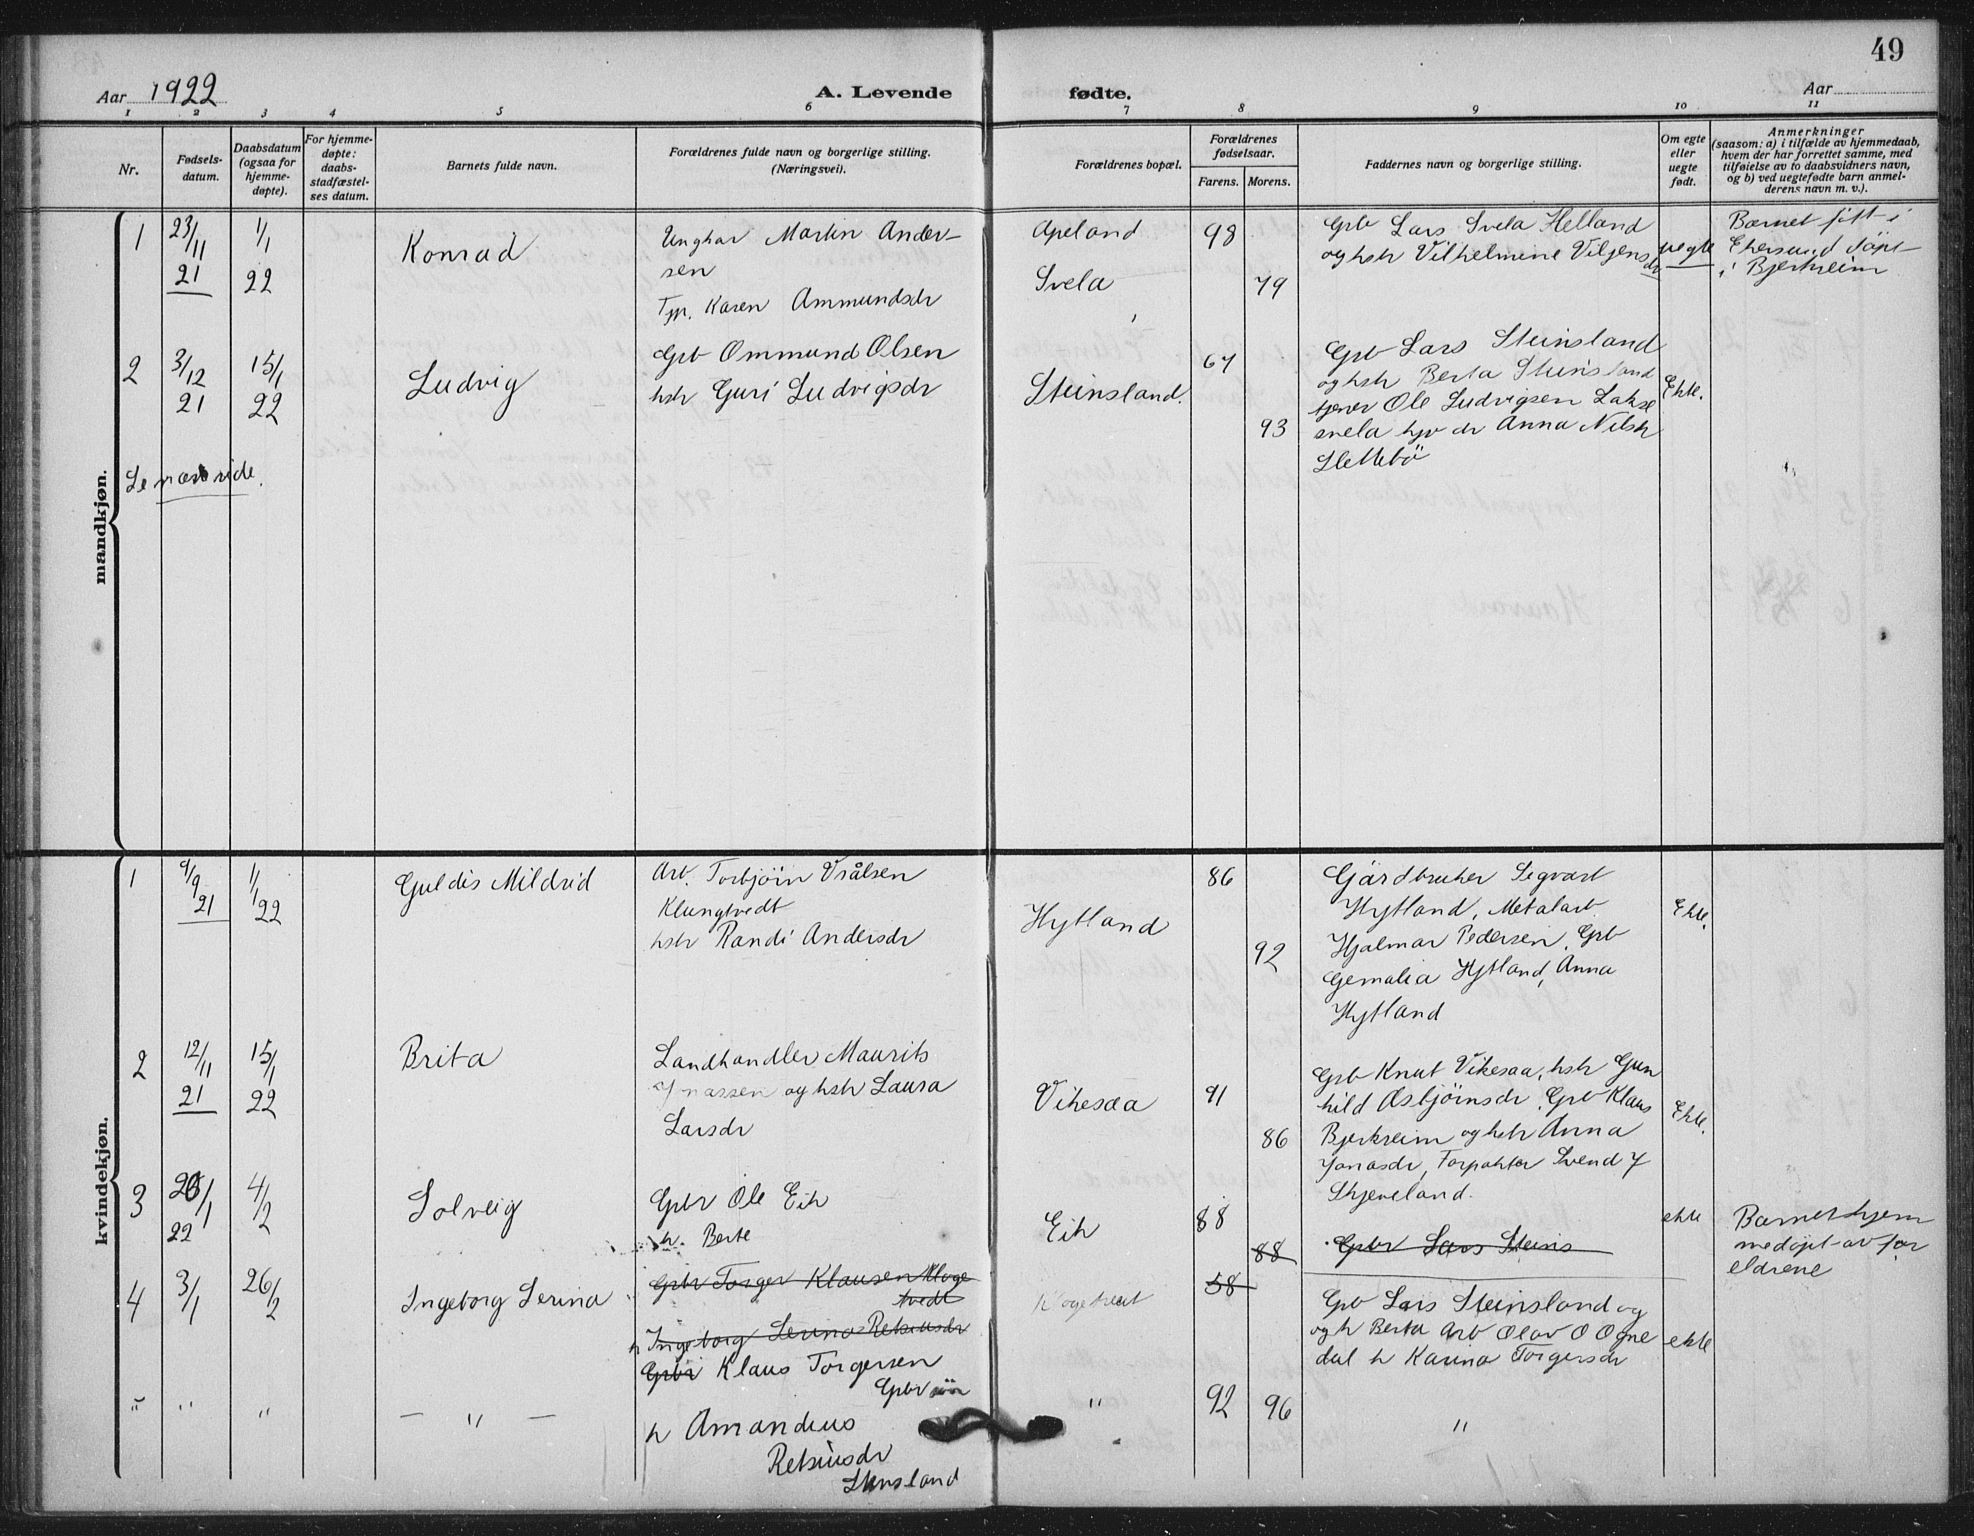 49
Aar 1922
A. Levende fødte.
Aar
1 2 3 4 5 6 7 8 9 10 11
Nr.
Fødsels-
datum.
Daabsdatum
(ogsaa for
hjemme-
døpte).
For hjemme-
døpte:
daabs-
stadfæstel-
ses datum.
Barnets fulde navn.
Forældrenes fulde navn og borgerlige stilling.
(Næringsvei).
Forældrenes bopæl.
Forældrenes
fødselsaar.
Farens. Morens.
Faddernes navn og borgerlige stilling.
Om egte
eller
uegte
født.
Anmerkninger
(saasom: a) i tilfælde av hjemmedaab,
hvem der har forrettet samme, med
tilføielse av to daabsvidners navn,
og b) ved uegtefødte barn anmel-
derens navn m. v.).
mandkjøn.
1
23/11
21
1/1
22
Konrad
Ungkar Martin Ander-
sen
Tjp. Karen Ammundsdr
Apeland
Svela
98
79
Grb Lars Svela Helland
og hstr Vilhelmine Viljensdr
uegte
Barnet født i
Ekersund døpt
i Bjerkreim
2
3/12
21
15/1
22
Ludvig
Grb Ommund Olsen
hstr Guri Ludvigsdr
Steinsland.
67
93
Grb Lars Steinsland
og hstr Berta Steinsland
tjener Ole Ludvigsen Lakse
svela hjv dr Anna Nilsdr
Slettebö
Ekte.
Se næste side.
kvindekjøn.
1
9/9
21
1/1
22
Guldis Mildrid
Arb. Torbjörn Vsålsen
Klungtvedt
hstr Randi Andersdr
Hytland
86
92
Gårdbruker Segvart
Hytland, Metalarb.
Hjalmar Pedersen, Grb
Gemalia Hytland, Anna
Hytland
Ekte.
2
12/11
21
15/1
22
Brita
Landhandler Maurits
Jnassen og hstr Laura
Larsdr
Vikesaa
91
86
Grb Knut Vikesaa, hstr Gun
hild Asbjörnsdr, Grb Klaus
Bjerkreim og hstr Anna
Jonasdr, Forpakter Svend J
Skjeveland.
Ekte.
3
/1
22
4/2
Solveig
Gbr Ole Eik
h. Berte
Eik
88
88
Gbr Lars Steins
ekte
Barnet hjem
medöpt av for
eldrene
4
3/1
26/2
Ingeborg Serina
Gbr Torger Klausen Kloge
tvedt
h Ingeborg Serina Retsiusdr
Gbr Klaus Torgersen
Gbr sön
Klogetveit
58
Grb Lars Steinsland og
og h Berta Arb Olav O Ogne
dal h Karina Torgersdr
ekte
" " " — " —
h Amandus
Retsiusdr
Stensland
"
92 96
"